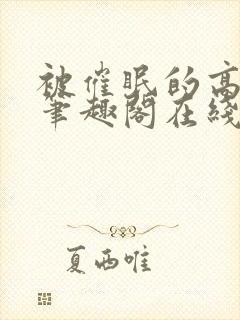 被催眠的高
笔趣阁在线
夏西唯